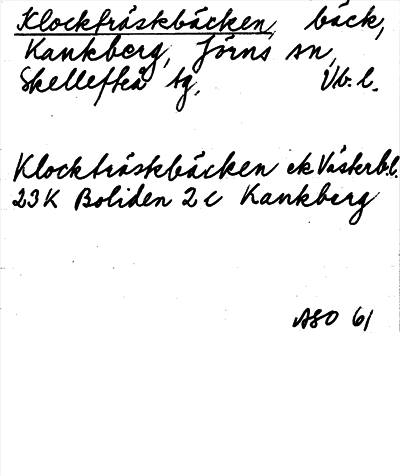 Klockträskbäcken, bäck,
Kankberg, Jörns sn,
Skellefteå tg, Vb. l.
Klockträskbäcken ek Västerb.l.
23K Boliden 2 c Kankberg
ASO 61